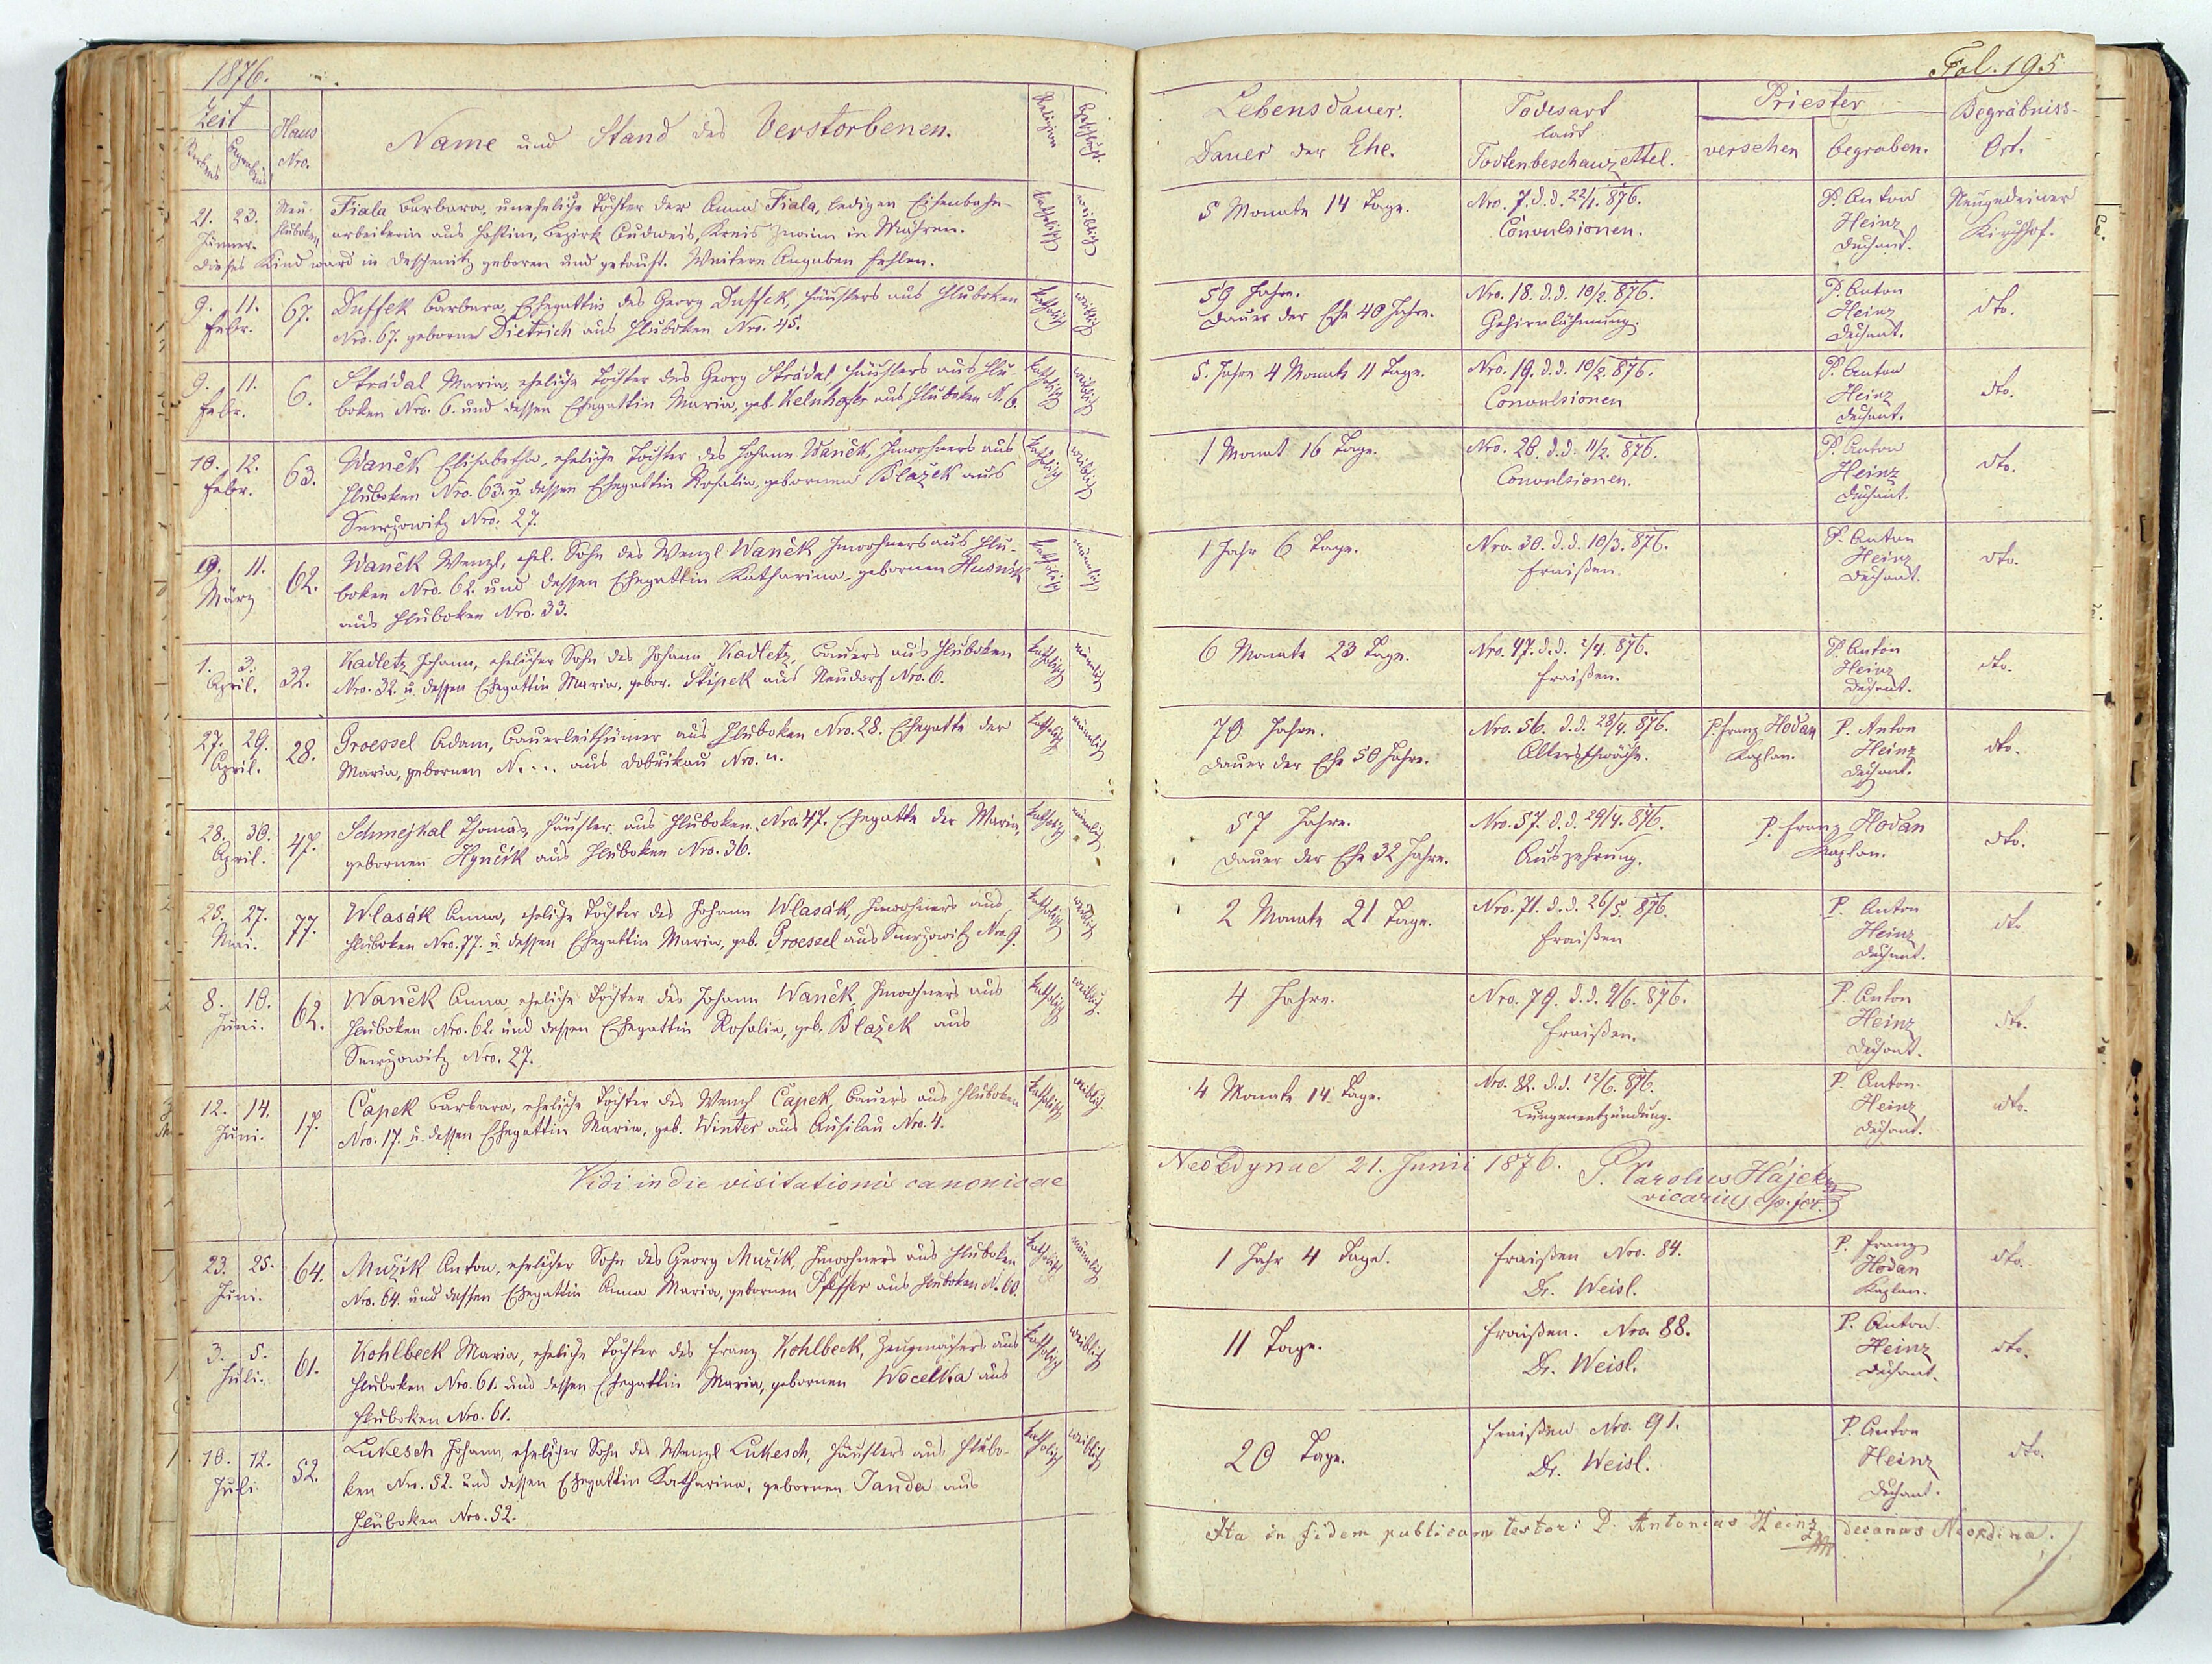 1876.
Zeit
Sterbens Begräbniss
Haus
Nro.
Name und Stand des Verstorbenen.
Religion
Geschlecht.
21. 23.
Jänner.
Neu-
Huboken
Fiala Barbara, uneheliche Tochter der Anna Fiala, ledigen Eisenbahn-
arbeiterin aus Hostim, Bezirk Budweis, Kreis Znaim in Mähren.
Dieses Kind ward in Deschenitz geboren und getauft. Weitere Angaben fehlen.
katholisch
weiblich
9. 11.
Febr.
67.
Duffek Barbara, Ehegattin des Georg Duffek, Häuslers aus Hluboken
Nro. 67. geborne Dietrich aus Hluboken Nro. 45.
katholisch
weiblich
9. 11.
Febr.
6.
Strádal Maria, eheliche Tochter des Georg Strádal Häuslers aus Hlu-
boken Nro. 6. und dessen Ehegattin Maria, geb. Kelnhofer aus Hluboken N. 6.
katholisch
weiblich
10. 12.
Febr.
63.
Waněk Elisabetha, eheliche Tochter des Johann Waněk, Inwohners aus
Hluboken Nro. 63. u. dessen Ehegattin Rosalia, gebornen Blažek aus
Smrzowitz Nro. 27.
katholisch
weiblich
9. 11.
März
62.
Waněk Wenzl, ehel. Sohn des Wenzl Waněk Inwohners aus Hlu-
boken Nro. 62. und dessen Ehegattin Katharina, gebornen Husník
aus Hluboken Nro. 33.
katholisch
männlich
1. 3.
April.
32.
Kadletz Johann, ehelicher Sohn des Johann Kadletz, Bauers aus Hluboken
Nro. 32. u. dessen Ehegattin Maria, gebor. Štípek aus Neudorf Nro. 6.
katholisch
männlich
27. 29.
April.
28.
Groessel Adam, Bauerleithümer aus Hluboken Nro. 28. Ehegatte der
Maria, gebornen N.... aus Dobrikau Nro. n.
katholisch
männlich
28. 30.
April.
47.
Schmejkal Thomas, Häusler aus Hluboken Nro. 47. Ehegatte der Maria,
gebornen Hynčík aus Hluboken Nro. 36.
katholisch
männlich
25. 27.
Mai.
77.
Wlasák Anna, eheliche Tochter des Johann Wlasák, Inwohners aus
Hluboken Nro. 77. u. dessen Ehegattin Maria, geb. Groessel aus Smrzowitz Nro. 9.
katholisch
weiblich
8. 10.
Juni.
62.
Waněk Anna, eheliche Tochter des Johann Waněk, Inwohners aus
Hluboken Nro. 62 und dessen Ehegattin Rosalia, geb. Blažek aus
Smrzowitz Nro. 27.
katholisch
weiblich.
12. 14.
Juni.
17.
Čapek Barbara, eheliche Tochter des Wenzl Čapek, Bauers aus Hluboken
Nro. 17. u. dessen Ehegattin Maria, geb. Winter aus Ausilau Nro. 4.
katholisch
weiblich.
Vidi in die visitationis canonicae
23. 25.
Juni.
64.
Mužik Anton, ehelicher Sohn des Georg Mužík, Inwohners aus Hluboken
Nro. 64. und dessen Ehegattin Anna Maria, gebornen Pfeffer aus Hluboken N. 60.
katholisch
männlich
3. 5.
Juli.
61.
Kohlbeck Maria, eheliche Tochter des Franz Kohlbeck, Zeugmachers aus
Hluboken Nro. 61. und dessen Ehegattin Maria, gebornen Wocelka aus
Hluboken Nro. 61.
katholisch
weiblich
10. 12.
Juli
52.
Lukesch Johann, ehelicher Sohn des Wenzl Lukesch, Häuslers aus Hlubo-
ken Nro. 52. und dessen Ehegattin Katharina, gebornen Janda aus
Hluboken Nro. 52.
katholisch
weiblich
Fol. 195
Lebensdauer.
Dauer der Ehe.
Todesart
laut
Todtenbeschauzettel.
Priester
versehen
begraben.
Begräbniss-
Ort.
5 Monate 14 Tage.
Nro. 7. d. d. 22/1. 876.
Convulsionen.
P. Anton
Heinz
Dechant.
Neugedeiner
Kirchhof.
59 Jahre.
Dauer der Ehe 40 Jahre.
Nro. 18. d. d. 10/2. 876.
Gehirnlähmung.
P. Anton
Heinz
Dechant.
dto.
5. Jahre 4 Monate 11 Tage.
Nro. 19. d. d. 10/2. 876.
Convulsionen
P. Anton
Heinz
Dechant.
dto.
1 Monat 16 Tage.
Nro. 20. d. d. 11/2. 876.
Convulsionen.
P. Anton
Heinz
Dechant.
dto.
1 Jahr 6 Tage.
Nro. 30. d. d. 10/3. 876.
Fraißen.
P. Anton
Heinz
Dechant.
dto.
6 Monate 23 Tage.
Nro. 47. d. d. 2/4. 876.
Fraißen.
P. Anton
Heinz
Dechant.
dto.
70 Jahre.
Dauer der Ehe 50 Jahre.
Nro. 56. d. d. 28/4. 876.
Altersschwäche.
P. Franz Hodan
Kaplan.
P. Anton
Heinz
Dechant.
dto.
57 Jahre.
Dauer der Ehe 32 Jahre.
Nro. 57. d. d. 29/4. 876.
Auszehrung.
P. Franz Hodan
Kaplan.
dto.
2 Monate 21 Tage.
Nro. 71. d. d. 26/5. 876.
Fraißen
P. Anton
Heinz
Dechant.
dto
4 Jahre.
Nro. 79. d. d. 9/6. 876.
Fraißen.
P. Anton
Heinz
Dechant.
dto.
4 Monate 14 Tage.
Nro. 82. d. d. 12/6. 876.
Lungenentzündung.
P. Anton
Heinz
Dechant.
dto.
Neogdynae 21. Junii 1876. P. Carolus Hájek
vicarius ep. for.
1 Jahr 4 Tage.
Fraißen Nro. 84.
Dr. Weisl.
P. Franz
Hodan
Kaplan.
dto.
11 Tage.
Fraißen. Nro. 88.
Dr. Weisl.
P. Anton
Heinz
Dechant.
dto.
20 Tage.
Fraißen Nro. 91.
Dr. Weisl.
P. Anton
Heinz
Dechant.
dto.
Ita in fidem publicam testor: P. Antonius Heinz decanus Neogdina.